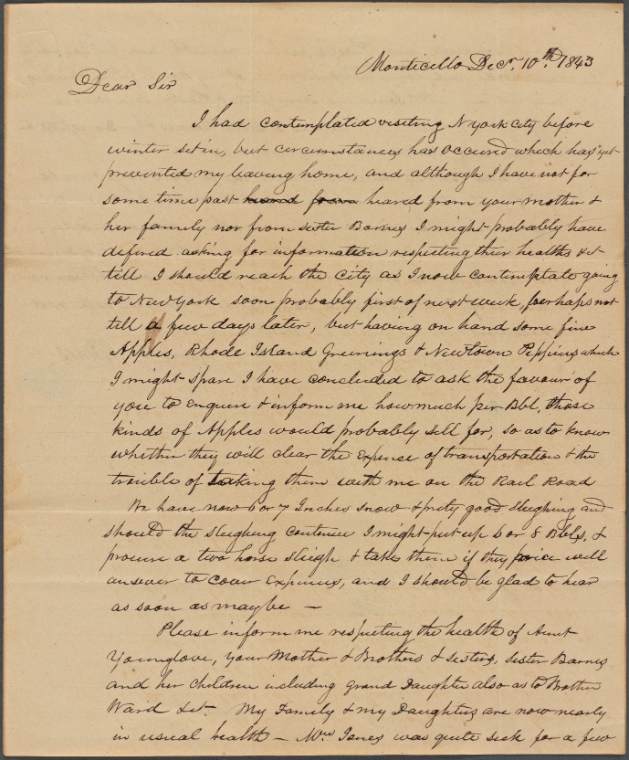 Monticello Decr. 10th. 1843
Dear Sir
I had contemplated visiting N York City before
winter set in, but circumstances has occured which has yet
prevented my leaving home, and although I have not for
some time past heard from heared from your Mother &
her family nor from sister Barnes I might probably have
defered asking for information respecting their healths &t
till I should reach the City as I now contemplate going
to New York soon probably first of next week, perhaps not
till a few days later, but having on hand some fine
Apples, Rhode Island Greenings & Newtown Pippins which
I might spare I have concluded to ask the favour of
you to enquire & inform me how much per Bbl. those
kinds of Apples would probably sell for, so as to know
whether they will clear the expense of transportation & the
trouble of taking them with me on the Rail Road
We have now 6 or 7 Inches snow & prety good sleighing and
should the sleighing continue I might put up 6 or 8 Bbls, &
procure a two horse sleigh & take them if they price will
answer to cover expenses, and I should be glad to hear
as soon as may be —
Please inform me respecting the health of Aunt
Younglove, your Mother & Brothers & sisters, sister Barnes
and her children including Grand Daughter also as to Brother
Ward &ct. My Family & my Daughters are now nearly
in usual health — Mrs Jones was quite sick for a few